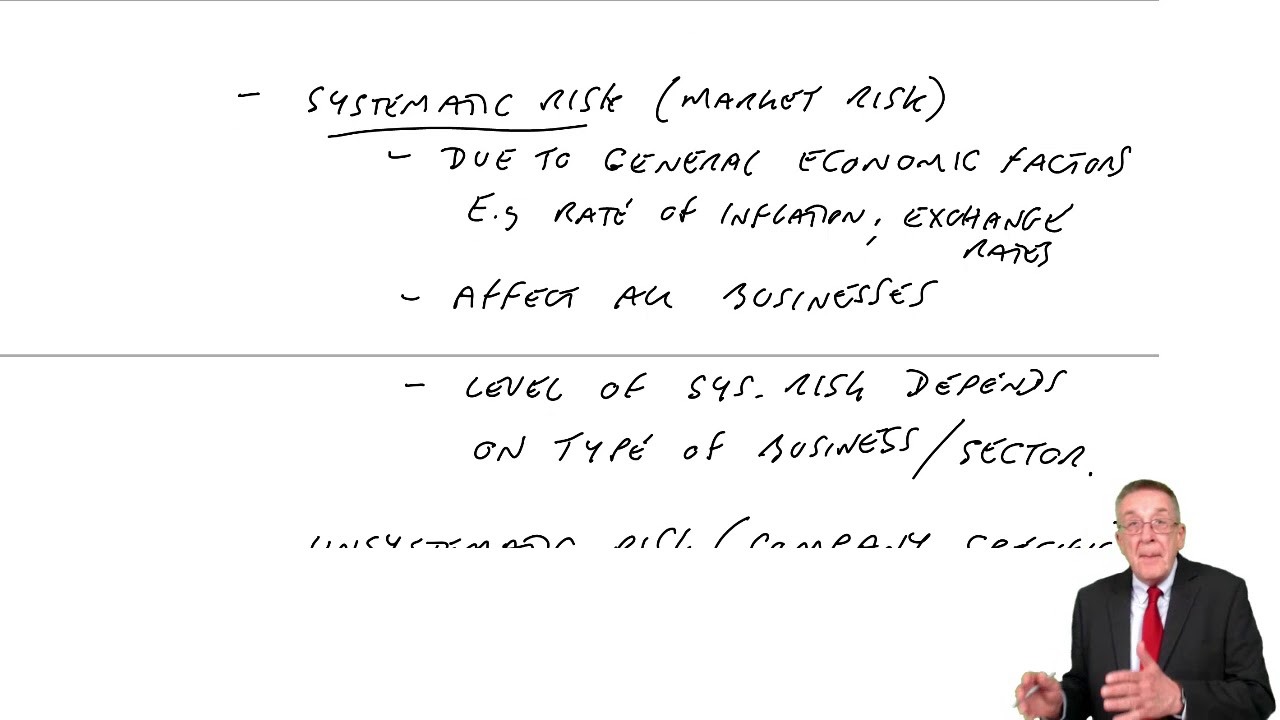 - SYSTEMATIC RISK (MARKET RISK)
- DUE TO GENERAL ECONOMIC FACTORS
E.g RATE OF INFLATION, EXCHANGE
RATES
- AFFECT ALL BUSINESSES
- LEVEL OF SYS. RISK DEPENDS
ON TYPE OF BUSINESS/SECTOR.
UNSYSTEMATIC RISK (COMPANY SPECIFIC